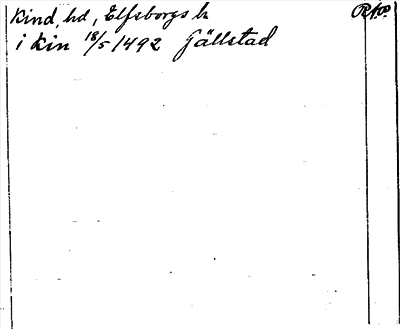 Kind, hd, Elfsborgs l.
i Kin 18/5 1492 Gällstad